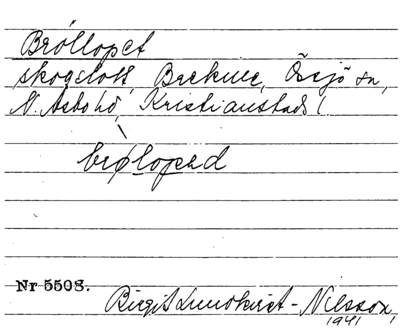 Bröllopet
skogstomt, Backure, Össjö sn,
N. Åsbo hd, Kristianstads l
brøloped
Nr 5508.
Birgit Lundkvist-Nilsson,
1941